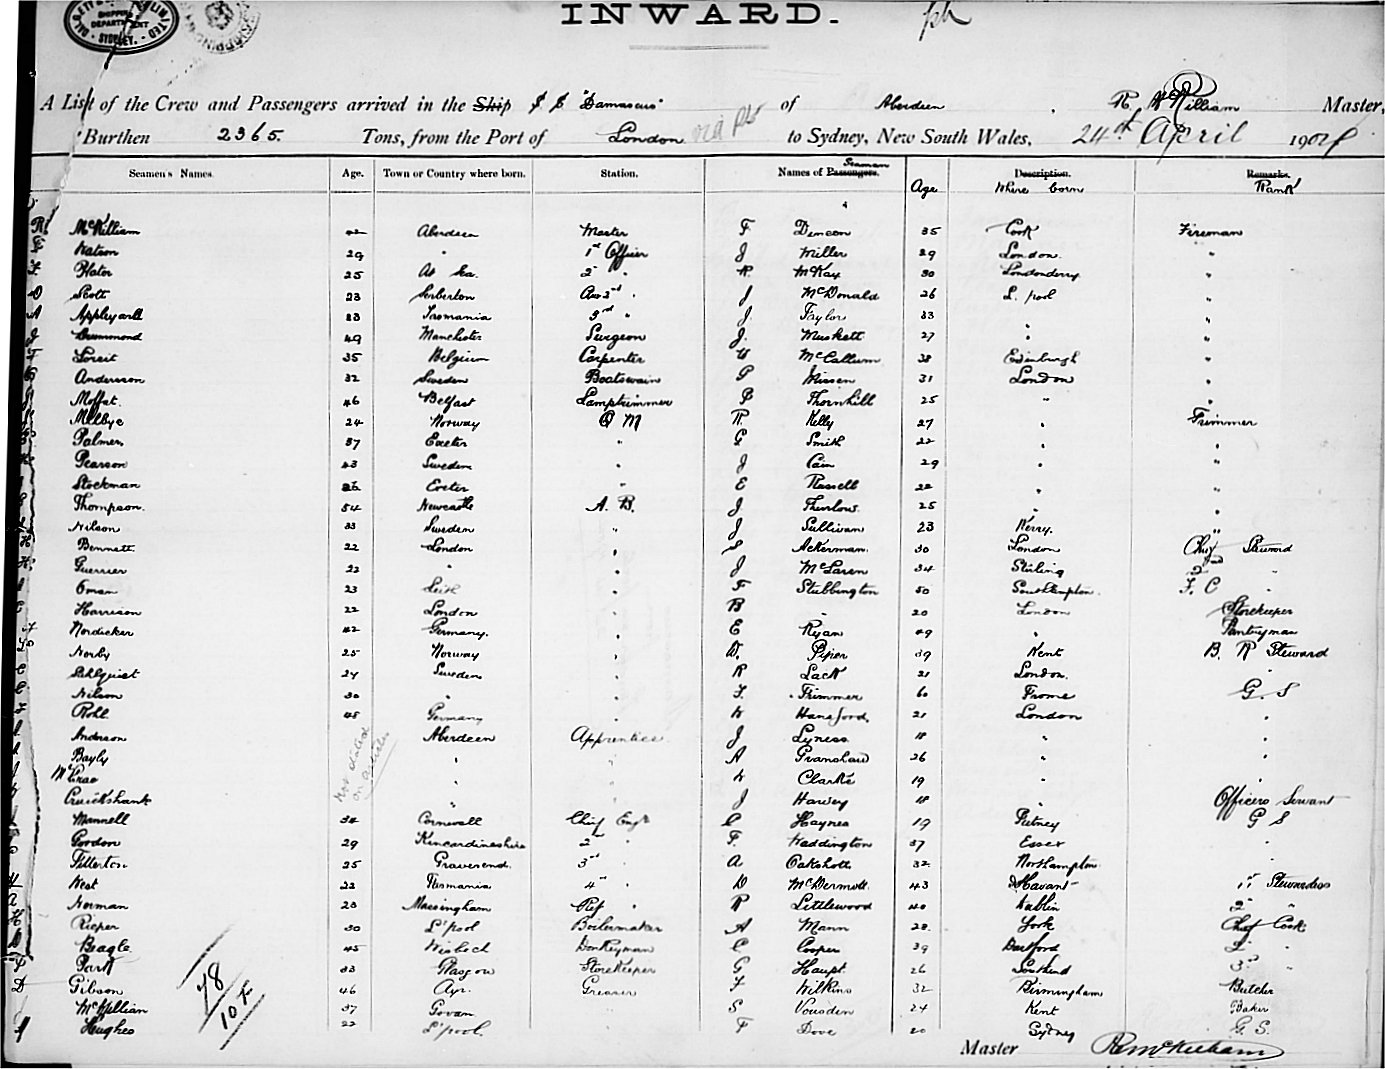 INWARD.
A List of the Crew and Passengers arrived in the Ship S S "Damascus" of Aberdeen, R McKilliam Master,
Burthen 2365. Tons, from the Port of London via pts to Sydney, New South Wales, 24th April 190
Seamen's Names. Age. Town or Country where born. Station. Names of Passengers. Seaman Age Description. Where born Remarks. Rank
R McKilliam 42 Aberdeen Master F Duncan 35 Cork Fireman
Watson 29 " 1st Officer J Miller 29 London "
25 At Sea. 2 " McKay 30 Londonderry "
Scott 23 3rd " J McDonald 26 L. pool "
A Appleyard 23 Tasmania 3rd " J. Taylor 33 " "
J 49 Manchester Surgeon J. Muskett 27 " "
35 Belgium Carpenter McCallum 38 Edinburgh "
Andersson 32 Sweden Boatswain London "
Moffat. 46 Belfast Lamptrimmer Thornhill 25 " "
Melbye 24 Norway Q M R. Kelly 27 " Trimmer
Palmer 37 Exeter " G Smith 22 " "
Pearson 43 Sweden " J Cain 29 " "
Stockman Exeter " E Russell 22 " "
Thompson. 54 Newcastle A. B. J Thurlow. 25 " "
Nilson 33 Sweden " J Sullivan 23 Kerry. "
Bennett 22 London " S Ackerman. 30 London Chief Steward
Guerrier 23 " " J McLaren 34 Stirling 2nd "
Oman 23 Leith " F Stubbington 50 Southampton. F. C "
Harrison 22 London " B " 20 London Storekeeper
Nordicker 42 Germany. " E Ryan 49 " Pantryman
Norby 25 Norway " Piper 39 Kent B. R Steward
Sweden " R Lack 21 London. "
Nilson 30 " " F. Trimmer 60 Frome G. S
Rohl 45 Germany " Hansford, 21 London "
Anderson Not stated on articles Aberdeen Apprentice J Lyness 18 " "
Bayly " " A Granshaw 26 " "
McCrae " " Clarke 19 " "
Cruickshank " " J Harvey 18 " Officers Servant
Mannell 34 Cornwall Chief Engr C Haynes 19 Putney G S
Gordon 29 Kincardineshire 2nd " F. Waddington 37 Essex "
Fillerton 25 Gravesend. 3rd " A Oakshott 32 Northampton "
West 22 Tasmania 4th " D McDermott. 43 Havant 1st Stewardess
Norman 23 Massingham Ref " R Littlewood 40 Dublin 2 "
Rieper 30 L'pool Boilermaker A Mann 22 York Chef Cook
Beagle 45 Wisbech Donkeyman C Cooper 39 Dartford 2 "
Park 33 Glasgow Storekeeper G Haupt. 26 Southend 3rd "
D Gibson 46 Ayr. Greaser F Wilkins 32 Birmingham Butcher
McMillian 37 Govan " S Vousden 24 Kent Baker
Hughes 22 L'pool. " F Dove 20 Sydney G. S.
78
Master R McKilliam